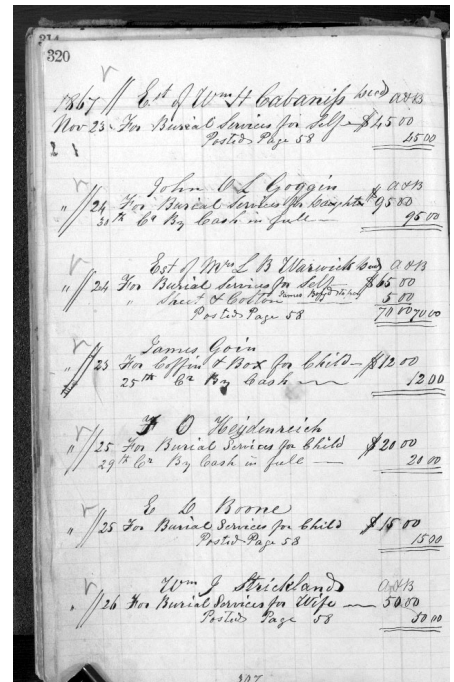 314
320
1867 // Est of Wm H Cabaniss Decd A&B
Nov 23 For Burial Services for Self $45 00
Posted Page 58 45 00
John O L Goggin A&B
" // 24 For Burial Services for Daughter $95 00
30th Cr By Cash in full 95 00
Est of Mrs L B Warwick Decd A&B
" // 24 For Burial Services for Self $65 00
" Sheet & Cotton 5 00
Posted Page 58 70 00 70 00
James Goin
" // 23 For Coffin & Box for Child $12 00
25th Cr By Cash 12 00
F O Heydenreich
" // 25 For Burial Services for Child $20 00
29th Cr By Cash in full 20 00
E D Boone
" // 25 For Burial Services for Child $15 00
Posted Page 58 15 00
Wm J Strickland A&B
" // 26 For Burial Services for Wife 50 00
Posted Page 58 50 00